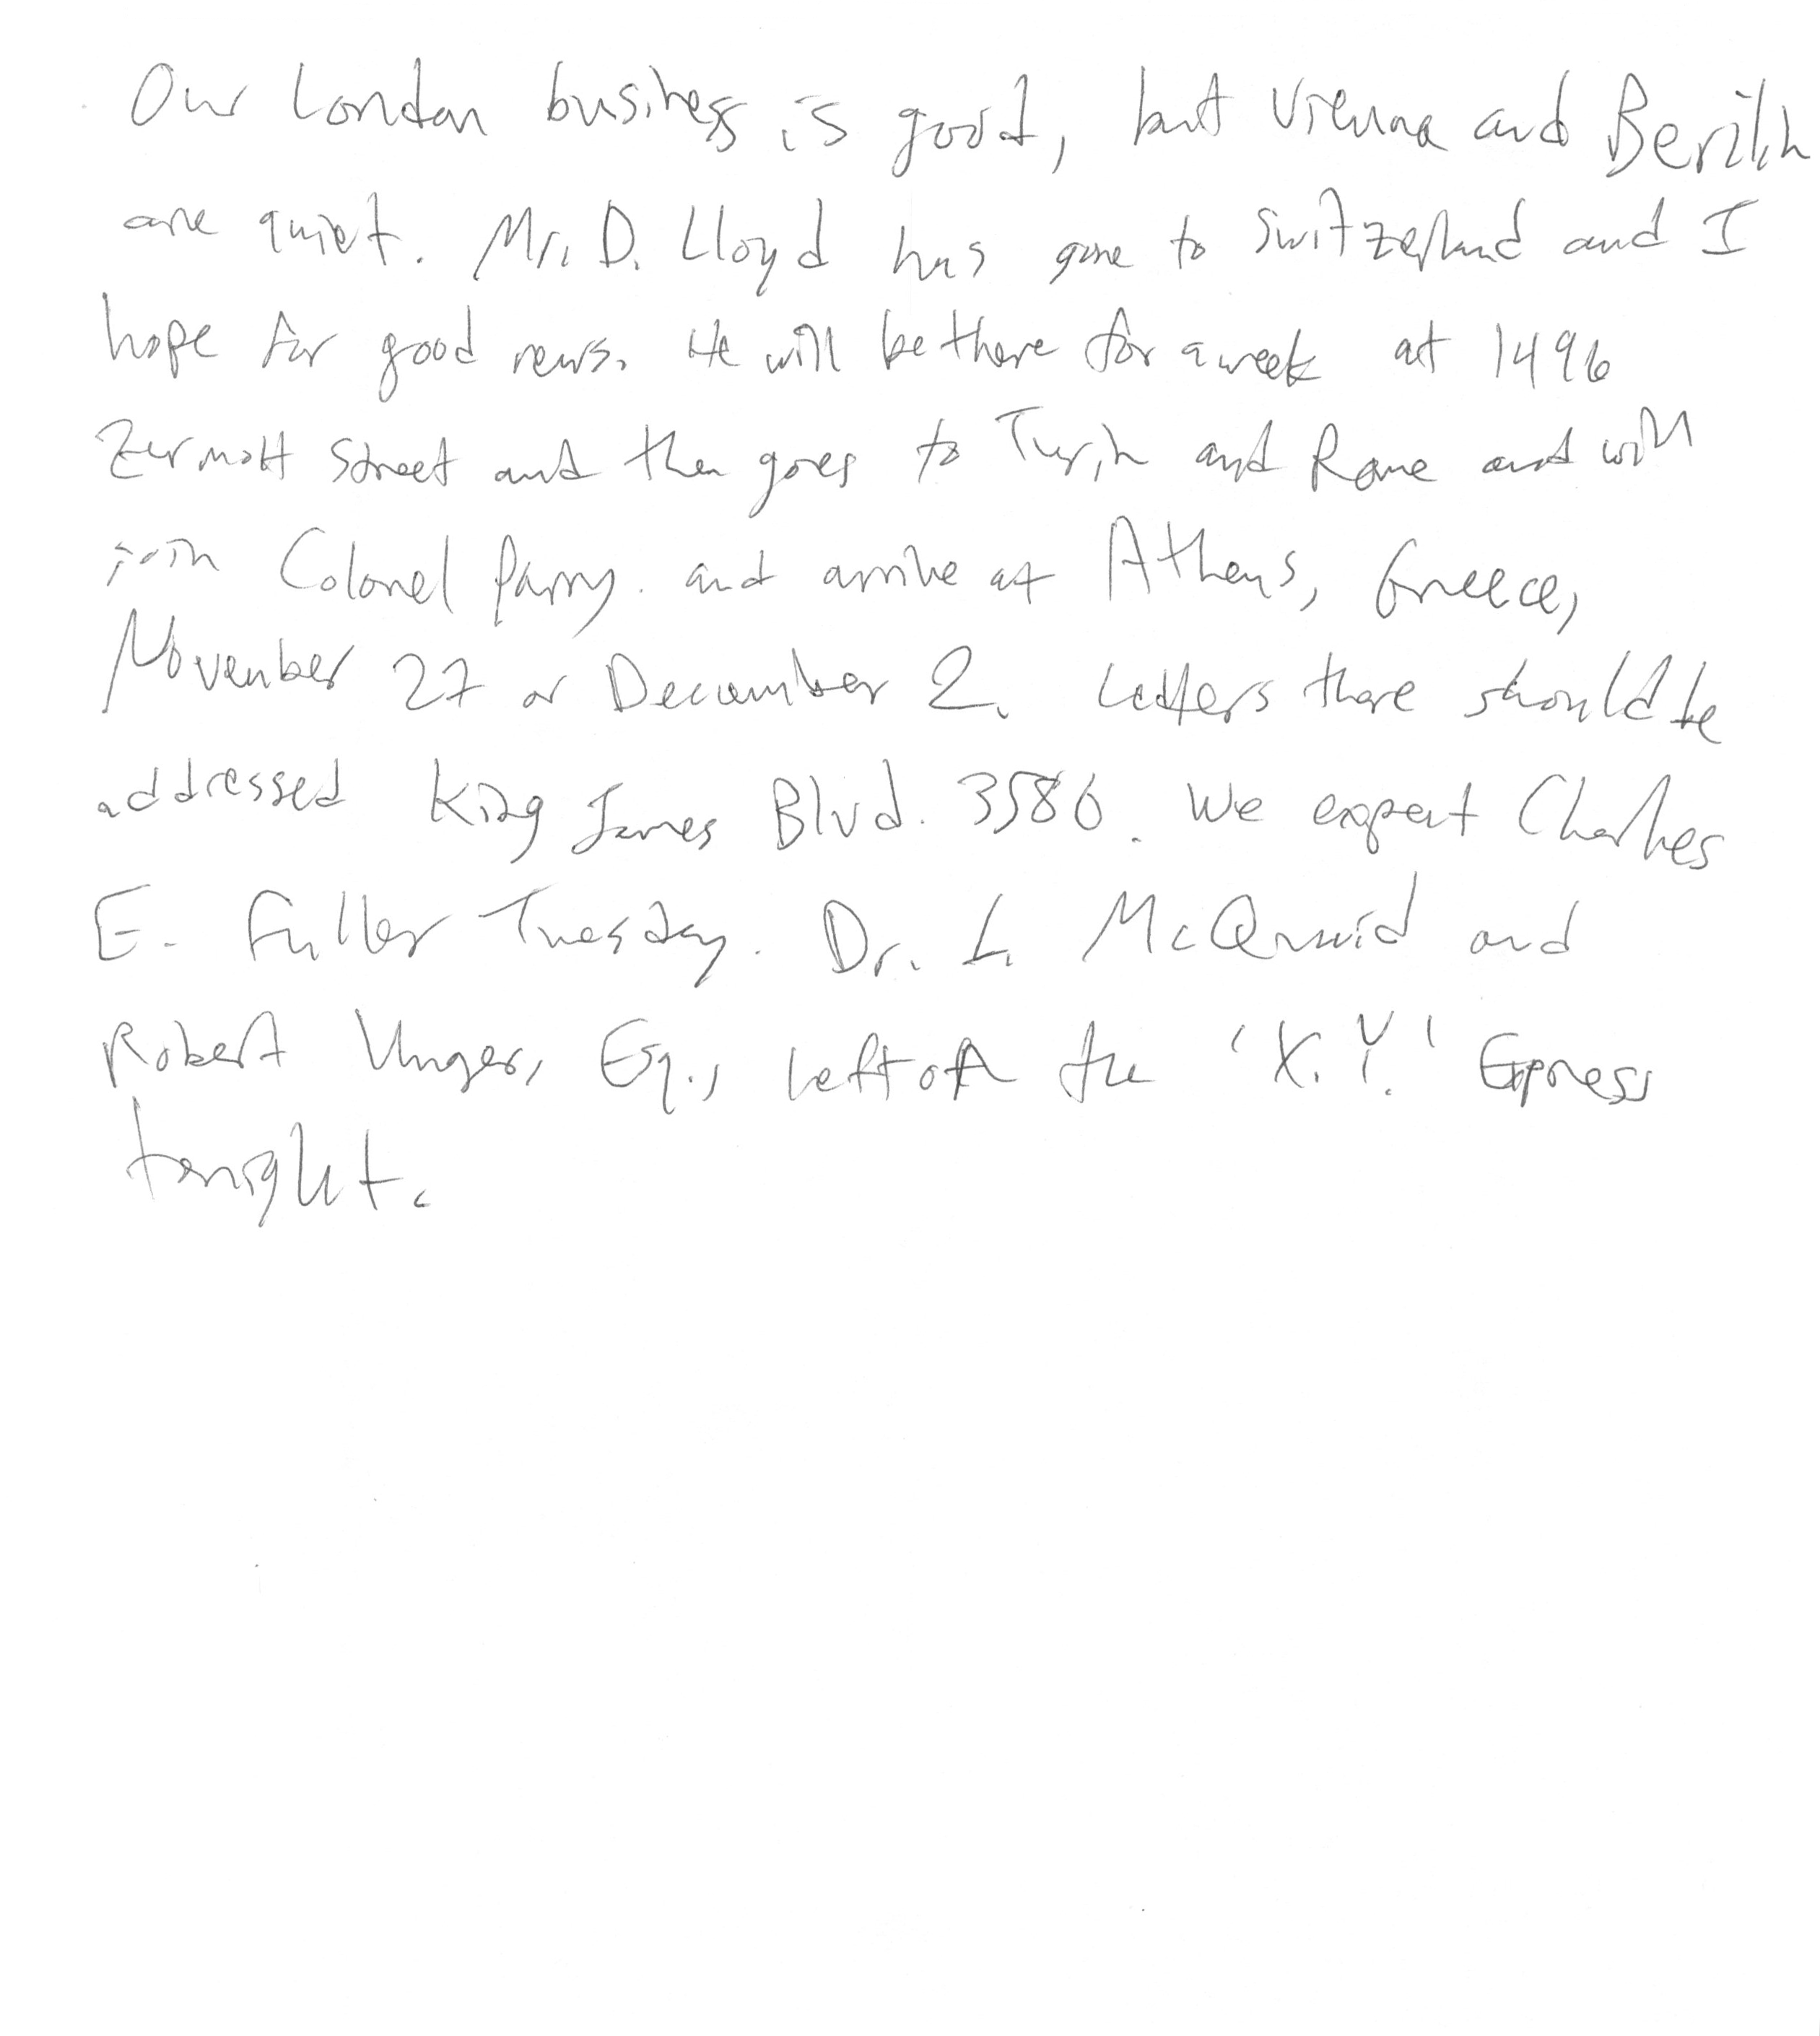 Our London business is good, but Vienna and Berilin
are quiet. Mr. D. Lloyd has gone to Switzerland and I
hope for good news. He will be there for a week at 1496
Zermott Street and then goes to Turin and Rome and will
join Colonel Parry. and arrive at Athens, Greece,
November 27 or December 2. Letters there should be
addressed King James Blvd. 3580. We expect Charles
E. Fuller Tuesday. Dr. L. McQuaid and
Robert Unger, Esq., left on the 'X.Y.' Express
tonight.